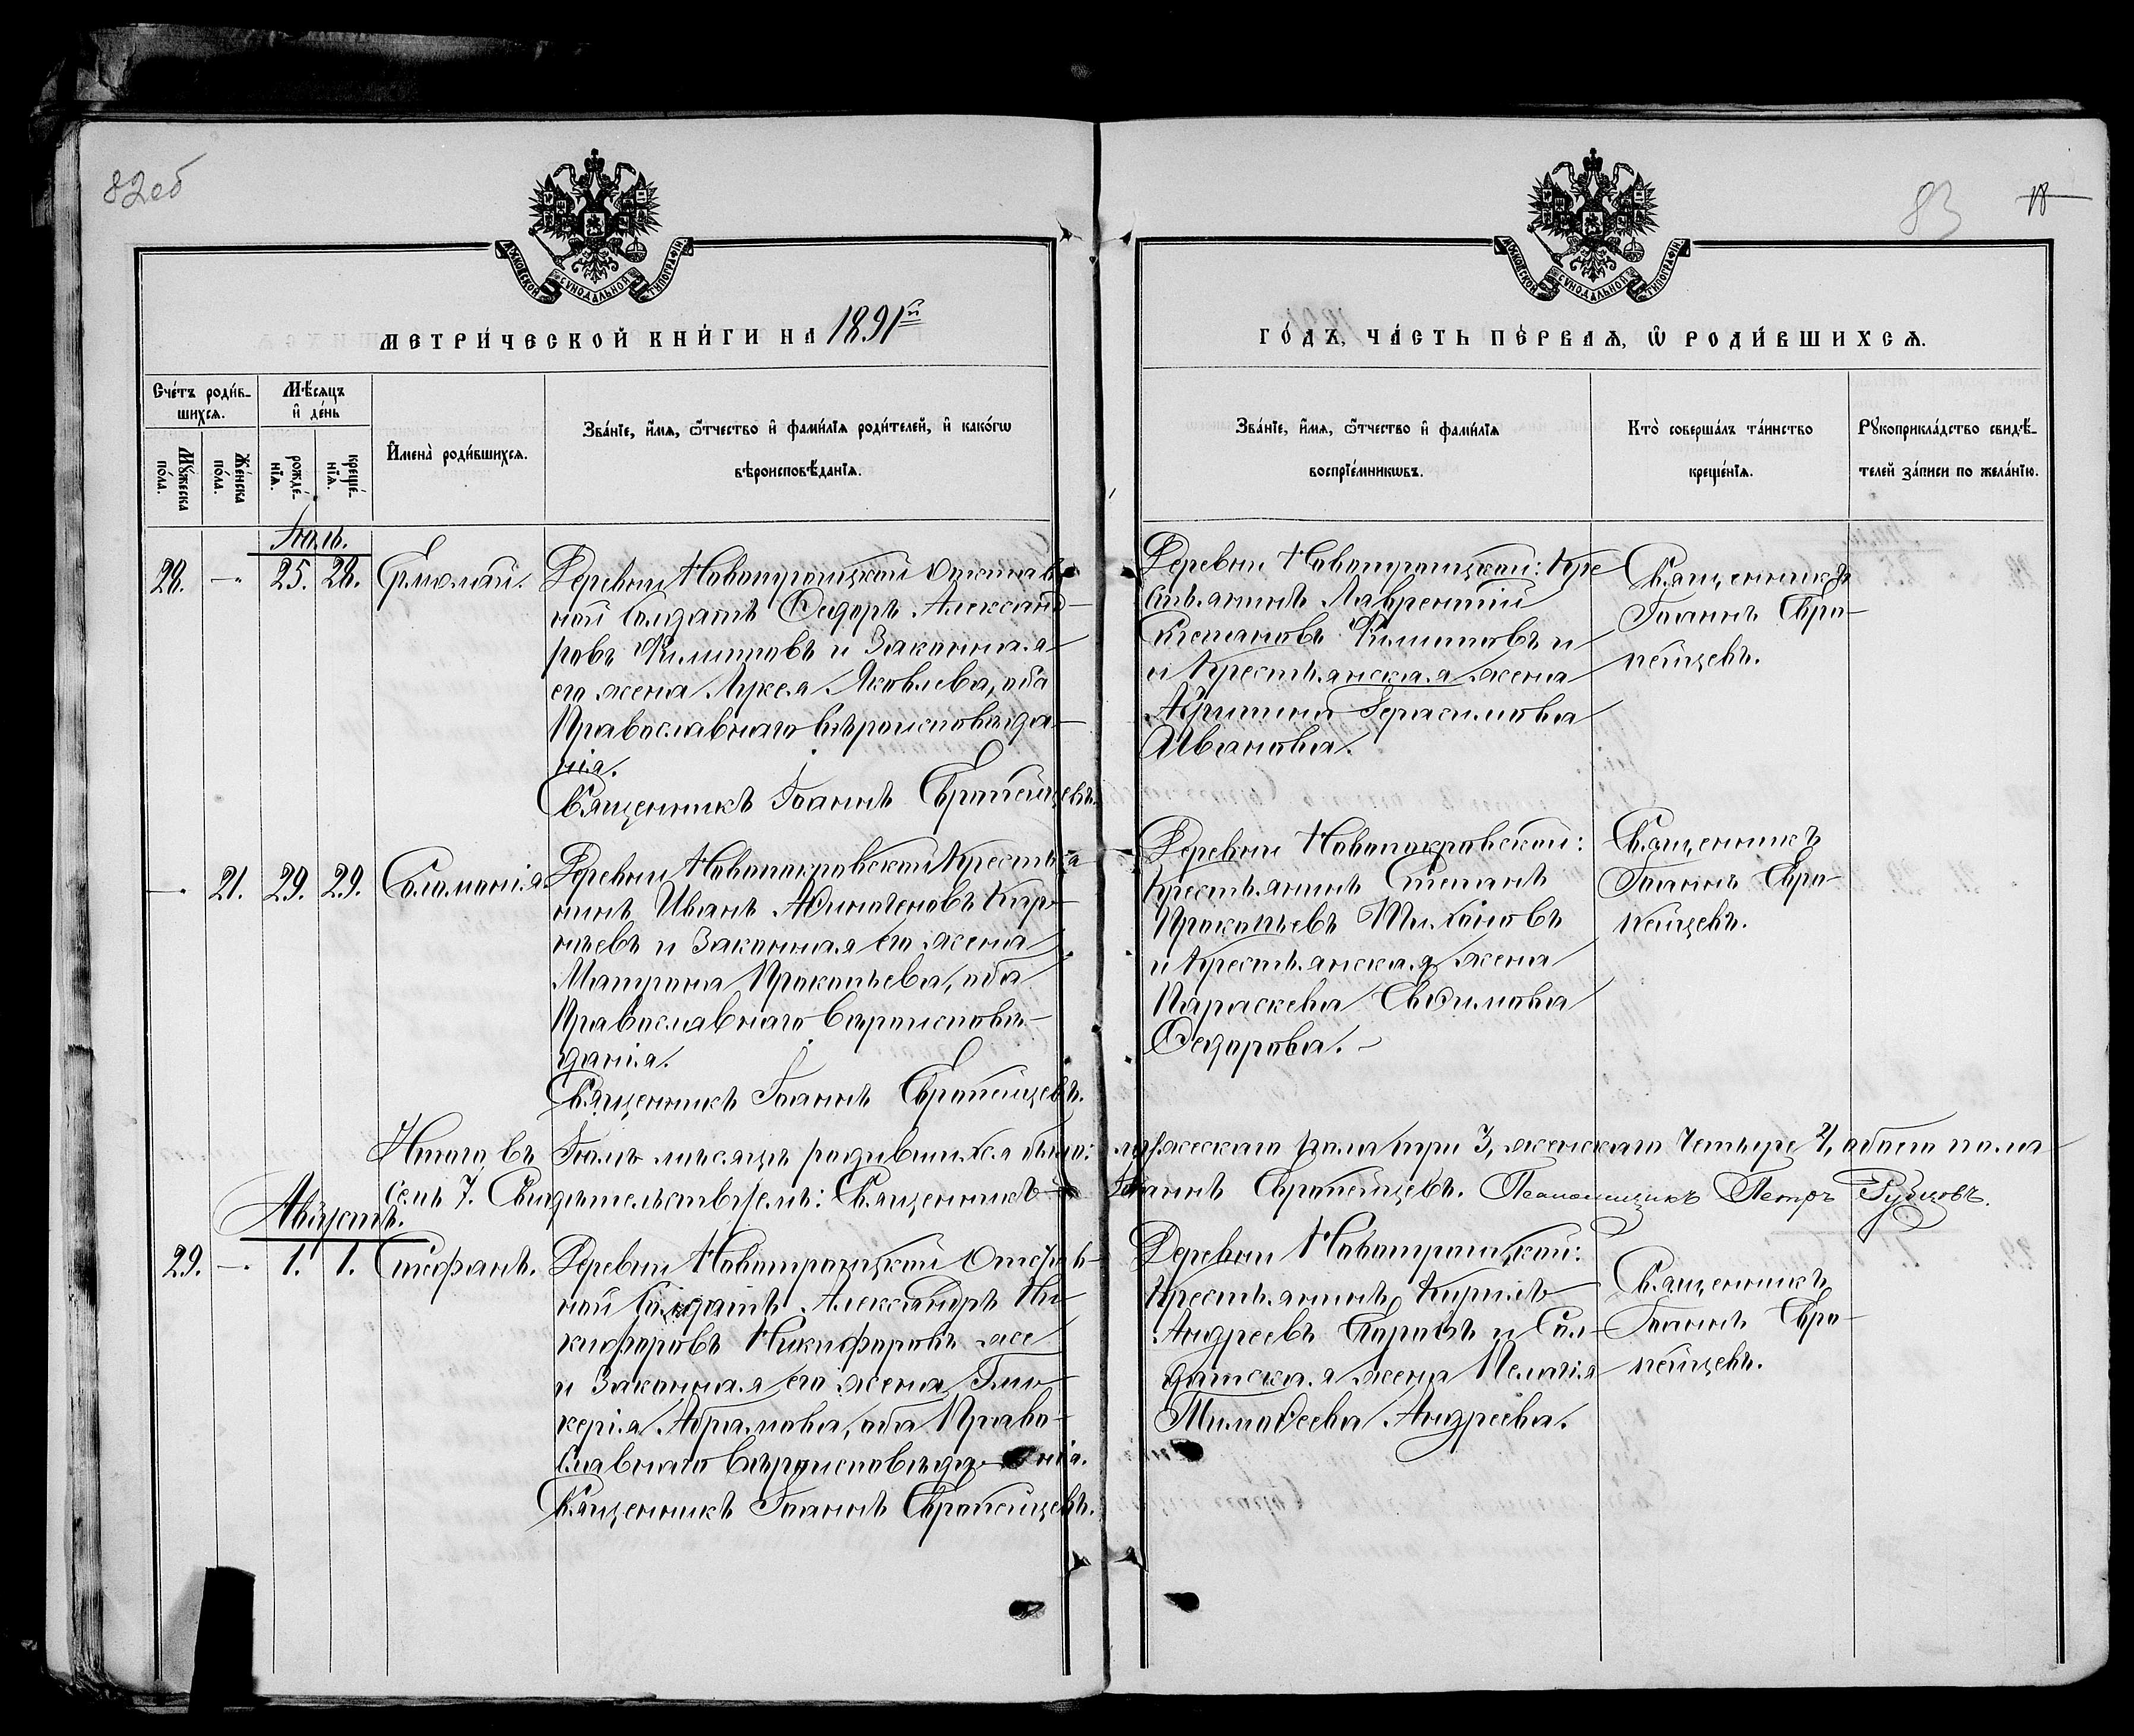 82об
83
18
МОСКОВСКОЙ СУНОДАЛЬНОЙ ТИПОГРАФІИ
МОСКОВСКОЙ СУНОДАЛЬНОЙ ТИПОГРАФІИ
МЕТРИ́ЧЕСКОЙ КНИ́ГИ НА 1891й
ГО́ДЪ, ЧА́СТЬ ПЕ́РВАѦ, Ѽ РОДИ́ВШИХСѦ.
Счéтъ роди́в-
шихсѧ.
Мꙋ́жеска
по́ла.
Же́нска
по́ла.
Мѣ́сѧцъ
и҆ де́нь
рожде́-
нїѧ.
креще́-
нїѧ.
И҆мена̀ роди́вшихсѧ.
Зва́нїе, и҆́мѧ, ѻ҆́тчество и҆ фами́лїѧ роди́телей, и҆ како́гѡ
вѣроисповѣ́данїѧ.
Зва́нїе, и҆́мѧ, ѻ҆́тчество и҆ фами́лїѧ
воспрїе́мникѡвъ.
Кто̀ соверша́лъ та́инство
креще́нїѧ.
Рꙋкоприкла́дство свидѣ́-
телей за́писи по жела́нїю.
Іюль.
28. — 25. 28. Ермолай.
Деревни Новотроицкой отстав-
ной солдатъ Ѳедоръ Александ-
ровъ Филиповъ и законная
его жена Лукея Яковлева, оба
Православнаго вѣроисповѣда-
нія.
Священникъ Іоаннъ Европейцевъ.
Деревни Новотроицкой: Кре
стьянинъ Лаврентій
Степановъ Филиповъ и
и Крестьянская жена
Акулина Герасимова
Иванова.
Священникъ
Іоаннъ Евро-
пейцевъ.
— 21. 29. 29. Соломонія
Деревни Новопокровской Крестья
нинъ Иванъ Аѳиногеновъ Кар-
пѣевъ и законная его жена
Матрона Прокопьева, оба
Православнаго вѣроисповѣ-
данія.
Священникъ Іоаннъ Европейцевъ.
Деревни Новопокровской:
Крестьянинъ Степанъ
Прокопьевъ Тихоновъ
и Крестьянская жена
Параскева Евѳимова
Ѳедорова. —
Священникъ
Іоаннъ Евро-
пейцевъ.
Итого въ Іюлѣ мѣсяцѣ родившихся было: мужескаго пола три 3, женскаго четыре 4, обоего пола
семь 7. Свидѣтельствуемъ: Священникъ Іоаннъ Европейцевъ. Псаломщикъ Петръ Рубцовъ.
Августъ.
29. — 1. 1. Стефанъ.
Деревни Новотроицкой отстав-
ной солдатъ Александръ Ни-
кифоровъ Никифоровъ же
и законная его жена Гли-
керія Абрамова, оба Право-
славнаго вѣроисповѣданія.
Священникъ Іоаннъ Европейцевъ.
Деревни Новотроицкой:
Крестьянинъ Кирилъ
Андреевъ и Сол-
датская жена Пелагія
Тимоѳеева Андреева.
Священникъ
Іоаннъ Евро-
пейцевъ.